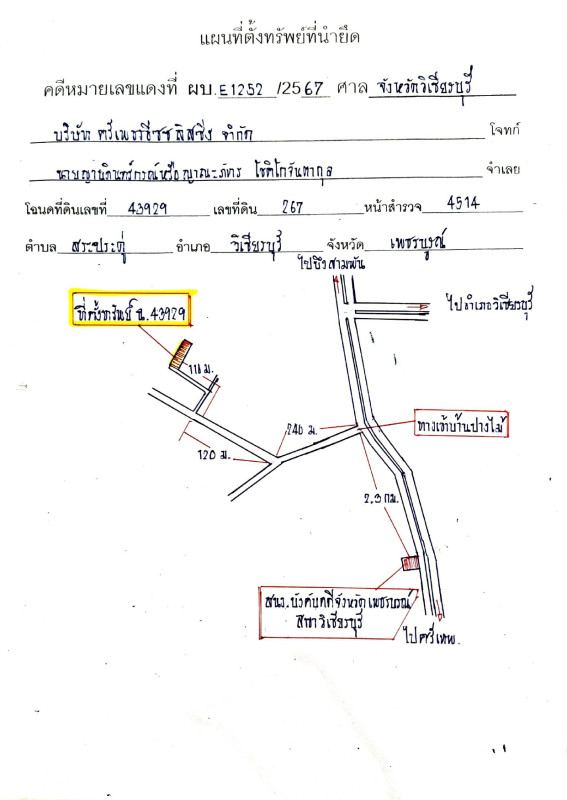 แผนที่ตั้งทรัพย์ที่นำยึด
คดีหมายเลขแดงที่ ผบ.E1252 /2567 ศาล จังหวัดวิเชียรบุรี
บริษัท ศรีเพชรธัชชลิสซิ่ง จำกัด โจทก์
โชติโกจันทากุล จำเลย
โฉนดที่ดินเลขที่ 43929 เลขที่ดิน 267 หน้าสำรวจ 4514
ตำบล สระประดู่ อำเภอ วิเชียรบุรี จังหวัด เพชรบูรณ์
ไปบึงสามพัน
ไปอำเภอวิเชียรบุรี
ที่ตั้งทรัพย์ ฉ.43929
118 ม.
240 ม.
ทางเข้าบ้านปางไม้
120 ม.
2.3 กม.
สนง.บังคับคดีจังหวัดเพชรบูรณ์
สาขาวิเชียรบุรี
ไปศรีเทพ.